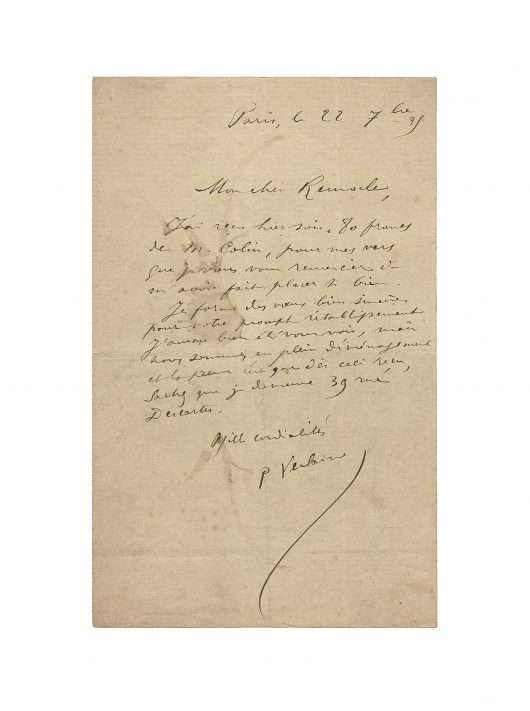 Paris, le 22 7bre 95
Mon cher Remacle,
J'ai reçu hier soir, 80 francs
de M. Colin, pour mes vers
que je vous remercier de
m'avoir fait placer si bien.
Je forme des vœux bien sincères
pour votre prompt rétablissement
J'aurais bien été vous voir, mais
nous sommes en plein déménagement
et la peur que dès ceci reçu,
Sachez que je demeure 39 rue
Descartes.
Mille cordialités
P Verlaine